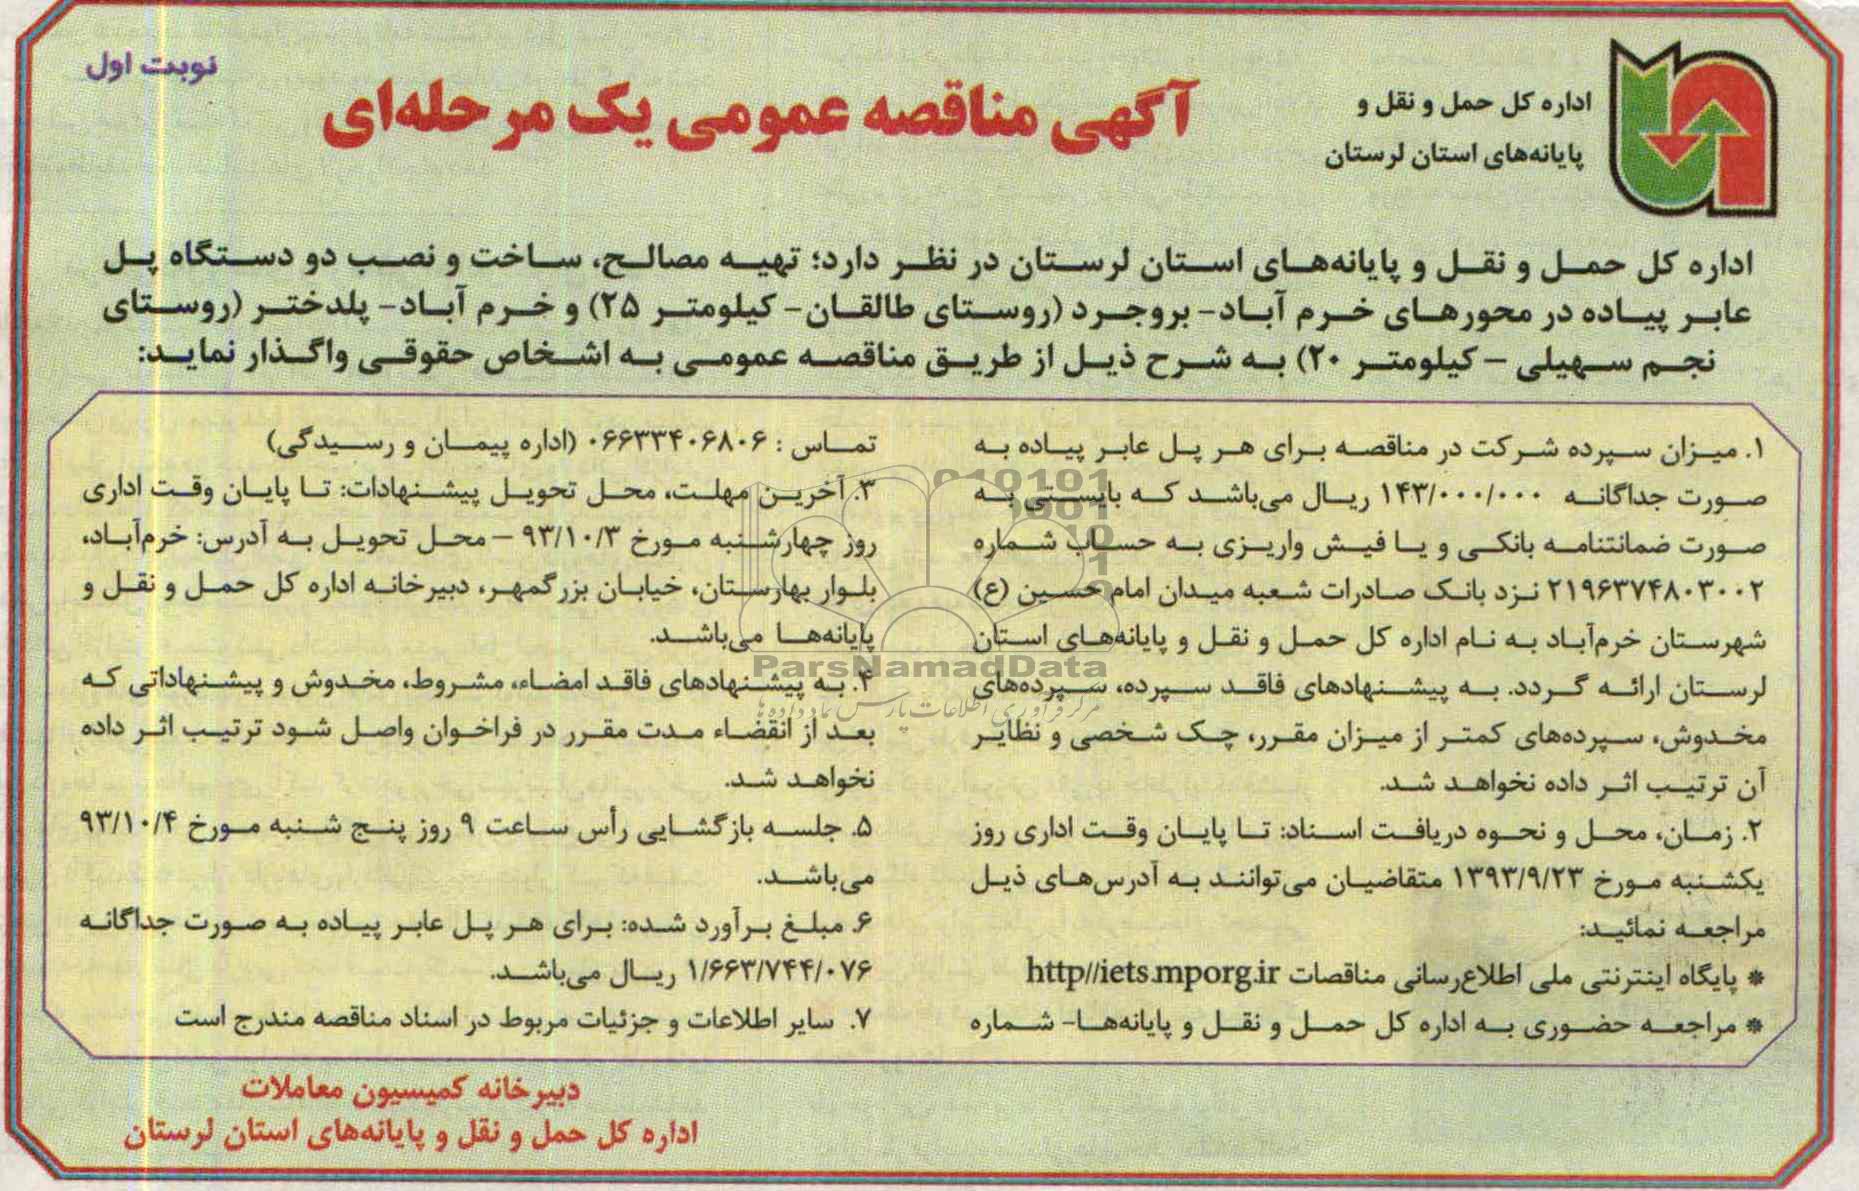 نوبت اول
اداره کل حمل و نقل و
پایانه‌های استان لرستان
آگهی مناقصه عمومی یک مرحله‌ای
اداره کل حمل و نقل و پایانه‌های استان لرستان در نظر دارد؛ تهیه مصالح، ساخت و نصب دو دستگاه پل
عابر پیاده در محورهای خرم آباد- بروجرد (روستای طالقان- کیلومتر ۲۵) و خرم آباد- پلدختر (روستای
نجم سهیلی – کیلومتر ۲۰) به شرح ذیل از طریق مناقصه عمومی به اشخاص حقوقی واگذار نماید:
۱. میزان سپرده شرکت در مناقصه برای هر پل عابر پیاده به
صورت جداگانه ۱۴۳/۰۰۰/۰۰۰ ریال می‌باشد که بایستی به
صورت ضمانتنامه بانکی و یا فیش واریزی به حساب شماره
۲۱۹۶۳۷۴۸۰۳۰۰۲ نزد بانک صادرات شعبه میدان امام حسین (ع)
شهرستان خرم‌آباد به نام اداره کل حمل و نقل و پایانه‌های استان
لرستان ارائه گردد. به پیشنهادهای فاقد سپرده، سپرده‌های
مخدوش، سپرده‌های کمتر از میزان مقرر، چک شخصی و نظایر
آن ترتیب اثر داده نخواهد شد.
۲. زمان، محل و نحوه دریافت اسناد: تا پایان وقت اداری روز
یکشنبه مورخ ۱۳۹۳/۹/۲۳ متقاضیان می‌توانند به آدرس‌های ذیل
مراجعه نمائید:
* پایگاه اینترنتی ملی اطلاع‌رسانی مناقصات http//iets.mporg.ir
* مراجعه حضوری به اداره کل حمل و نقل و پایانه‌ها- شماره
تماس : ۰۶۶۳۳۴۰۶۸۰۶ (اداره پیمان و رسیدگی)
۳. آخرین مهلت، محل تحویل پیشنهادات: تا پایان وقت اداری
روز چهارشنبه مورخ ۹۳/۱۰/۳ – محل تحویل به آدرس: خرم‌آباد،
بلوار بهارستان، خیابان بزرگمهر، دبیرخانه اداره کل حمل و نقل و
پایانه‌ها می‌باشد.
۴. به پیشنهادهای فاقد امضاء، مشروط، مخدوش و پیشنهاداتی که
بعد از انقضاء مدت مقرر در فراخوان واصل شود ترتیب اثر داده
نخواهد شد.
۵. جلسه بازگشایی رأس ساعت ۹ روز پنج شنبه مورخ ۹۳/۱۰/۴
می‌باشد.
۶. مبلغ برآورد شده: برای هر پل عابر پیاده به صورت جداگانه
۱/۶۶۳/۷۴۴/۰۷۶ ریال می‌باشد.
۷. سایر اطلاعات و جزئیات مربوط در اسناد مناقصه مندرج است
ParsNamadData
مرکز فرآوری اطلاعات پارس نماد داده ها
دبیرخانه کمیسیون معاملات
اداره کل حمل و نقل و پایانه‌های استان لرستان